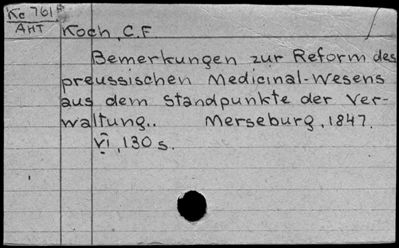 Kc 761
AHT
Koch, C.F.
Bemerkungen zur Reform des
preussischen Medicinal-Wesens
aus dem Standpunkte der Ver-
waltung.. Merseburg, 1847.
VI, 130 s.